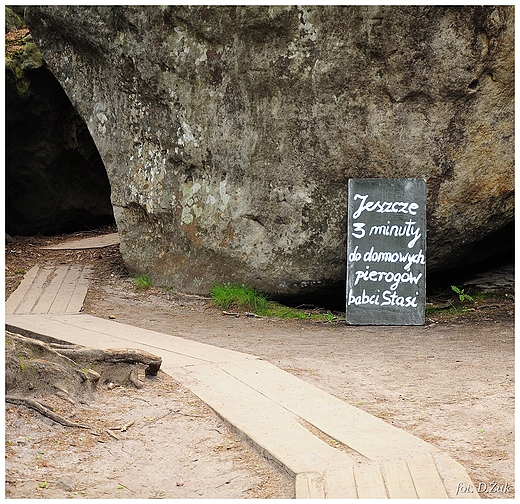 Jeszcze
3 minuty
do domowych
pierogów
babci Stasi
fot. D.Żuk